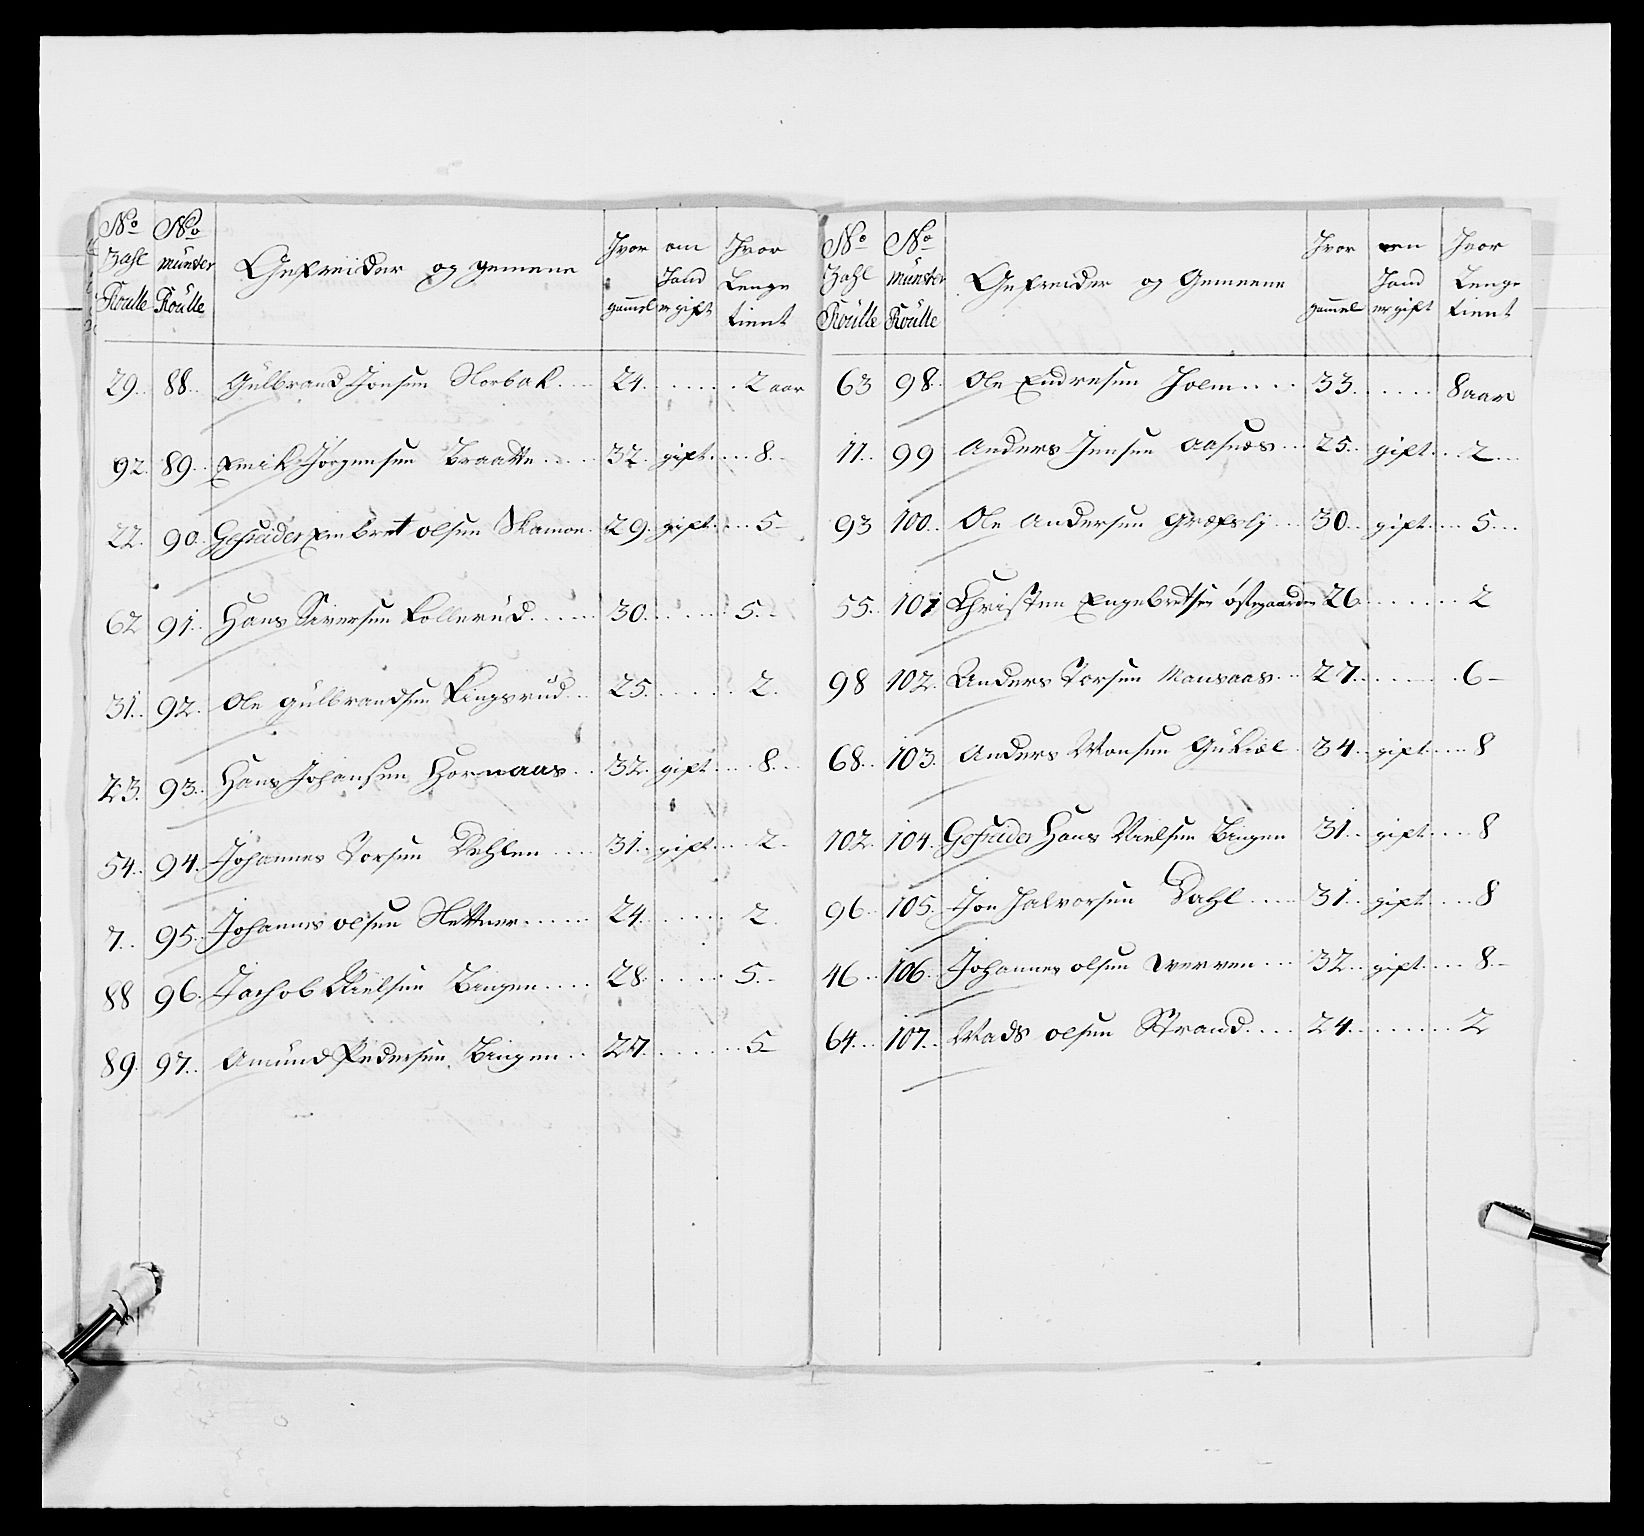 No No Gefreider og gemeene Hvor gammel om Hand er gift Hvor Lenge tient
Zahl Roulle münster Roülle
29. 88. Gulbrand Jonsen Norbak 24. 2 aar
92. 89. Erik Jörgensen Braatte 32. gift 8.
22. 90. Gefreider Embret olsen Skamoe 29. gift 5
62 91. Hans Siversen Kollerud 30. 5.
31. 92. Ole gulbrandsen Ringsrud 25. 2.
23. 93. Hans Johansen Hornaas 32. gift 8.
54. 94. Johannes Torsen Dehlen 31. gift 2.
7. 95. Johannes olsen Nettner 24. 2.
88 96. Jachob Nielsen Bingen 28. 5.
89. 97. Amund Pedersen Bingen 27. 5
No No Gefreider og Gemeene Hvor gammel om Hand er gift Hvor Lenge tient
Zahl Roülle münster Roülle
63 98. Ole Endresen Holm 33. 8 aar
11. 99 Anders Jensen Aasnæs 25. gift 2
93 100. Ole Andersen Græfslj 30. gift 5
55. 101 Christen Engebretsen östegaarden 26. 2
98 102. Anders Torsen Mausaas 27. 6
68. 103. Anders Monsen Gukiæl 34. gift 8
102. 104. Gefreider Hans Nielsen Bingen 31. gift 8
96. 105. Jon Halvorsen Dahl 31. gift 8
46. 106. Johannes olsen Werven 32. gift 8
64. 107. Mads olsen Strand 24. 2